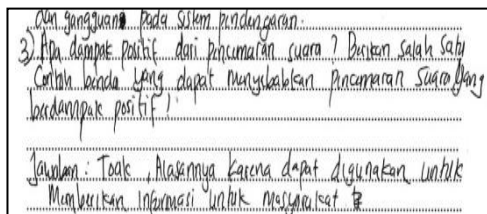 dan gangguan pada sistem pendengaran.
3) Apa dampak positif dari pencemaran suara ? Berikan salah satu
Contoh benda yang dapat menyebabkan pencemaran suara yang
berdampak positif !
Jawaban : Toak , Alasannya karena dapat digunakan untuk
Memberikan Informasi untuk masyarakat